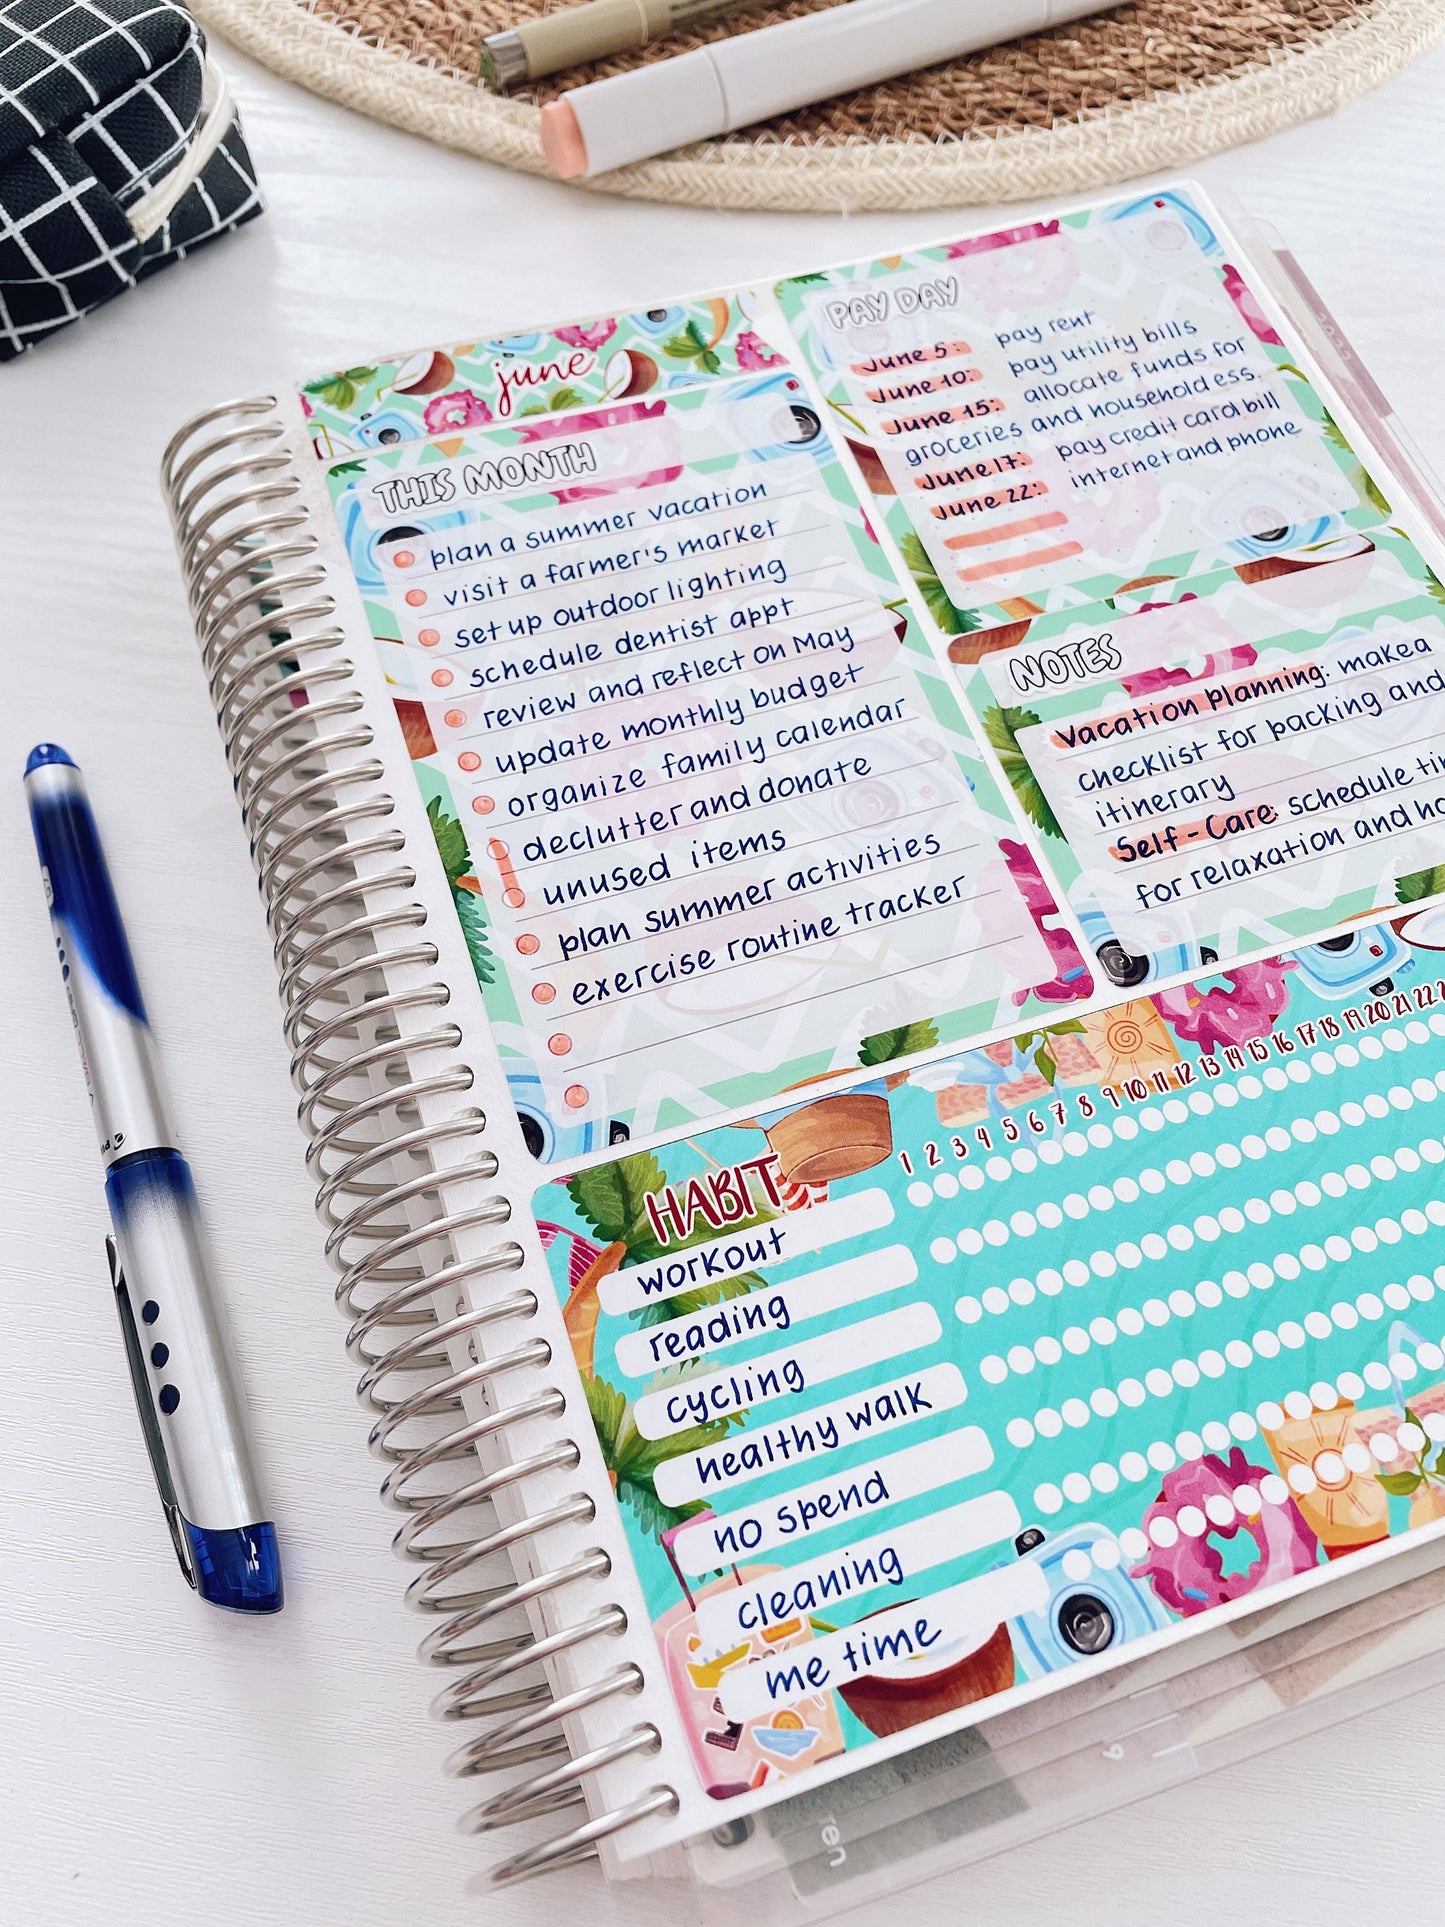 june
THIS MONTH
plan a summer vacation
visit a farmer's market
set up outdoor lighting
schedule dentist appt
review and reflect on May
update monthly budget
organize family calendar
declutter and donate
unused items
plan summer activities
exercise routine tracker
PAY DAY
June 5: pay rent
June 10: pay utility bills
June 15: allocate funds for
groceries and household ess.
June 17: pay credit card bill
June 22: internet and phone
NOTES
Vacation planning: make a
checklist for packing and
itinerary
Self-Care: schedule
for relaxation and
HABIT
1 2 3 4 5 6 7 8 9 10 11 12 13 14 15 16 17 18 19 20 21 22
workout
reading
cycling
healthy walk
no spend
cleaning
me time